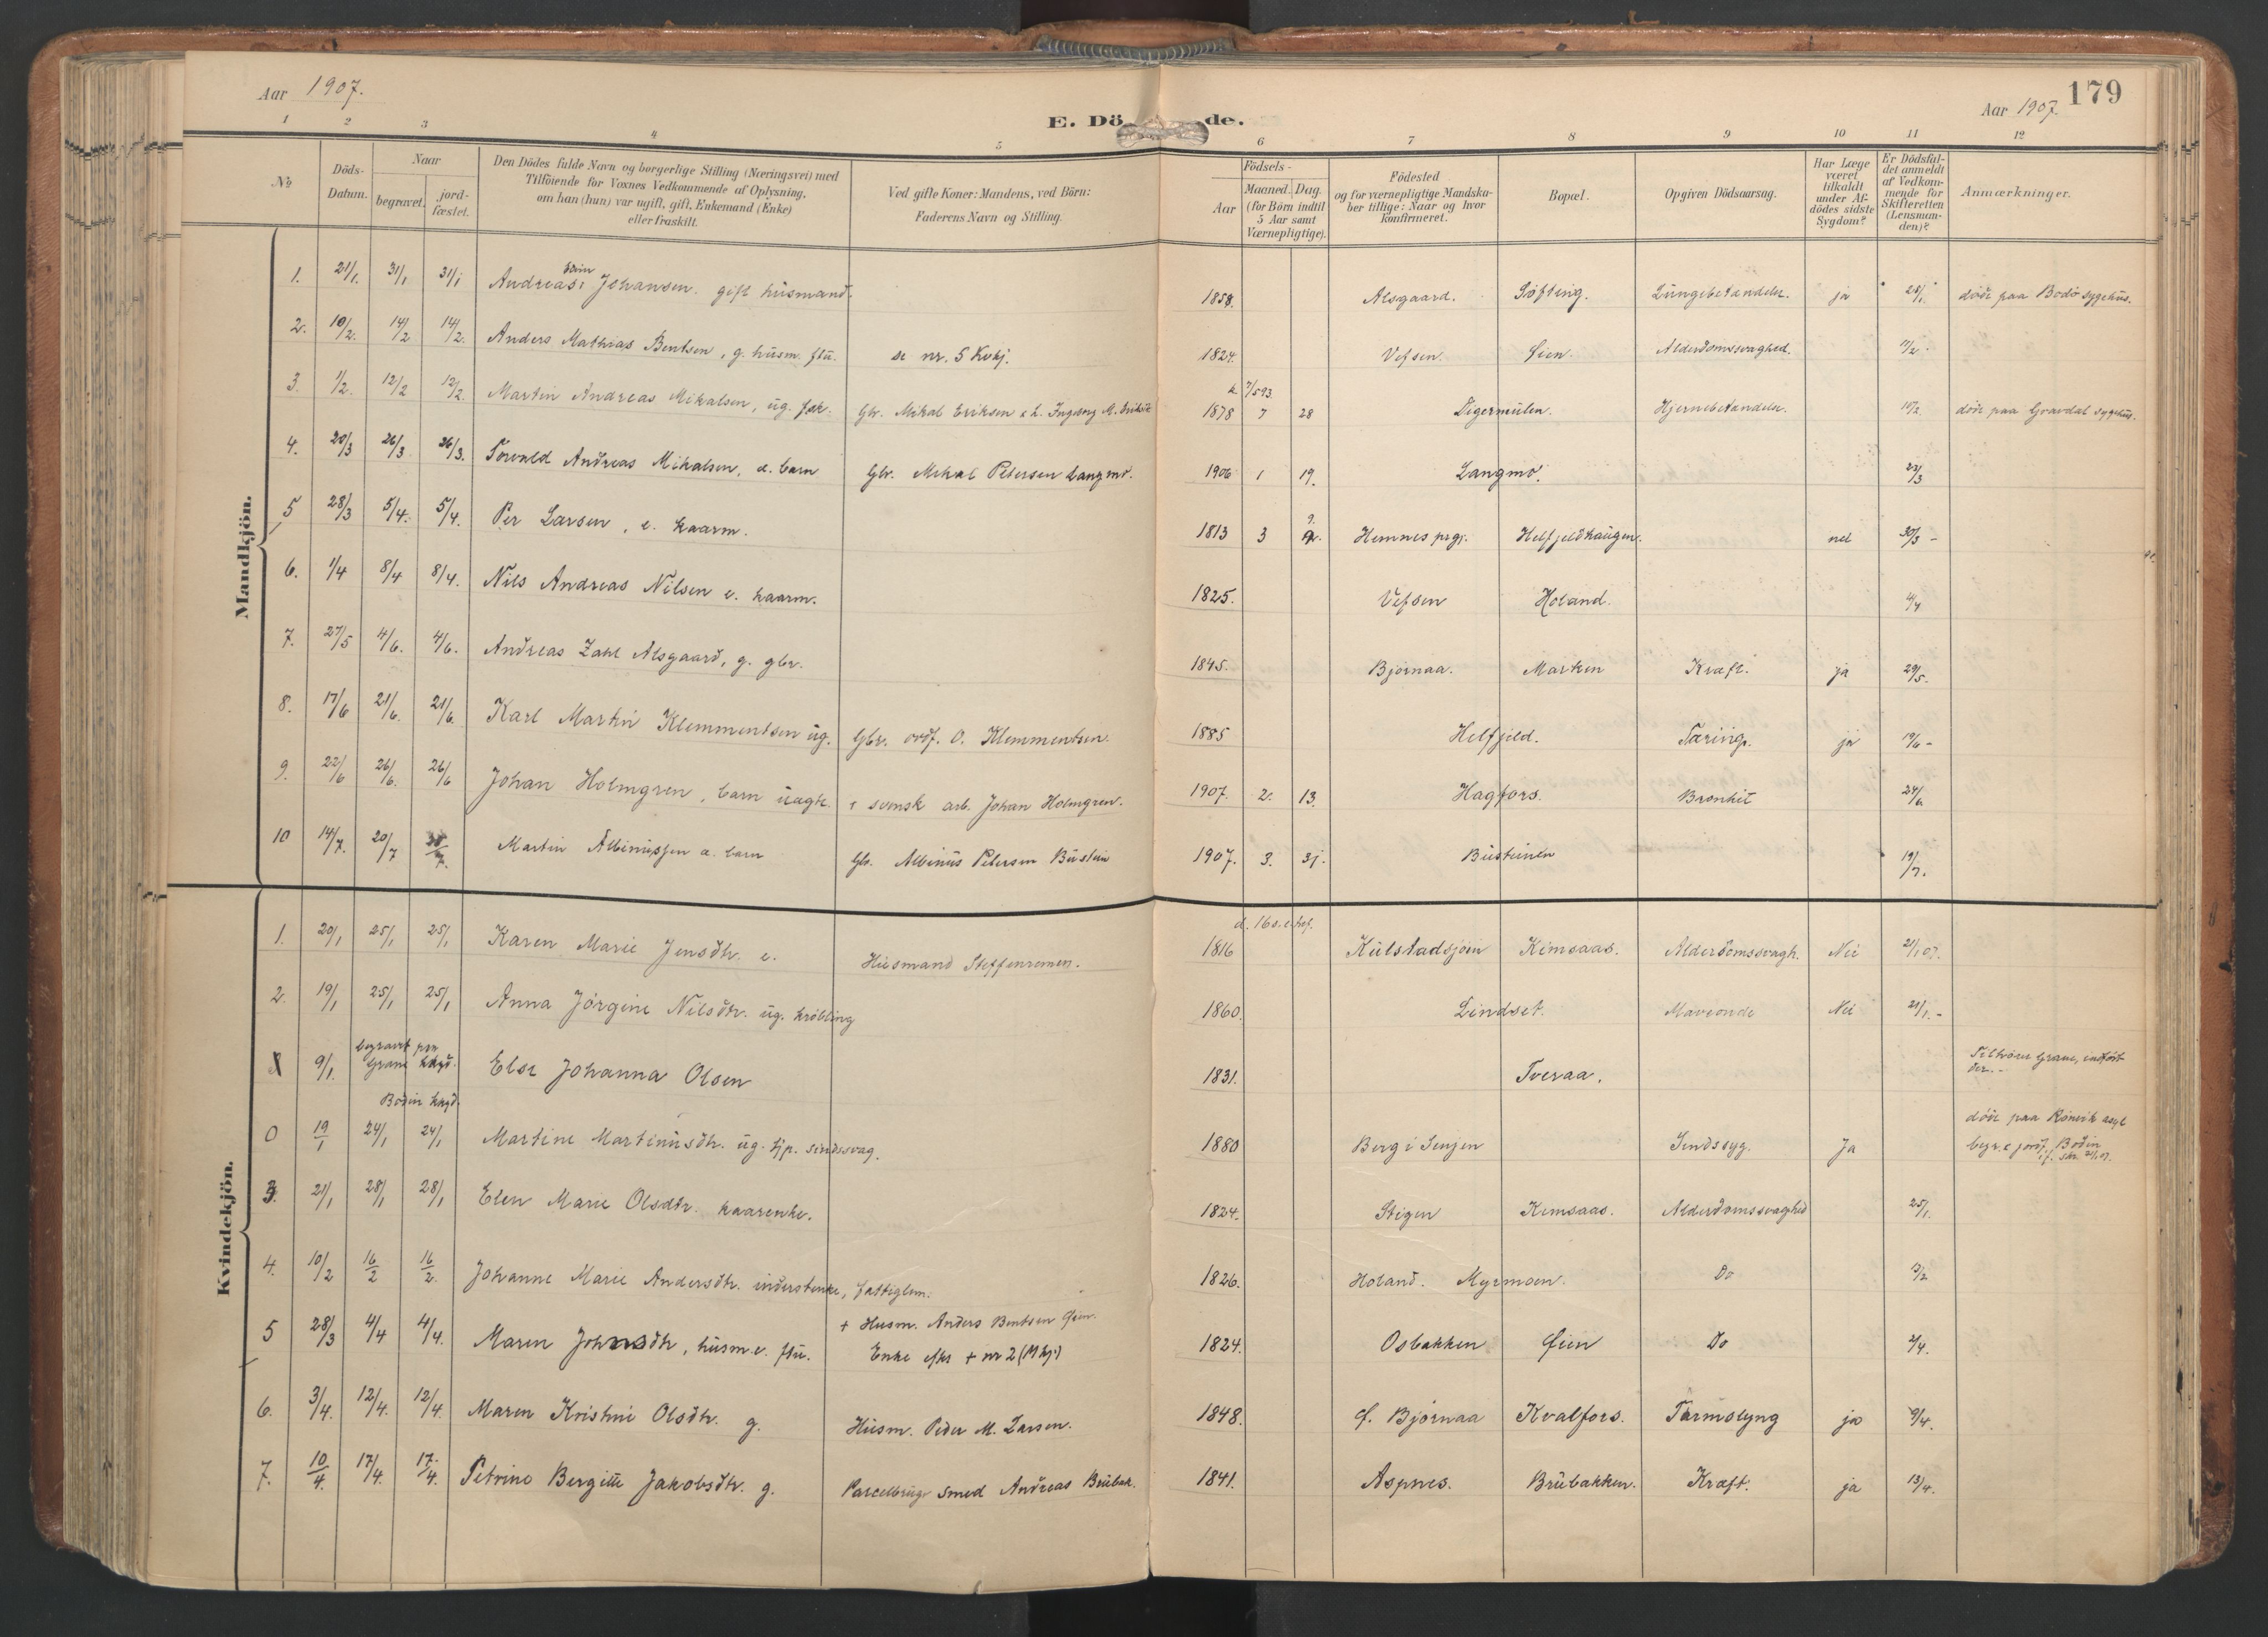 Aar 1907.
E. Dö de.
Aar 1907. 179
1 2 3 4 5 6 7 8 9 10 11 12
No
Döds-Datum.
Naar
begravet.
jord-fæstet.
Den Dödes fulde Navn og borgerlige Stilling (Næringsvei) med
Tilföiende for Voxnes Vedkommende af Oplysning,
om han (hun) var ugift, gift, Enkemand (Enke)
eller fraskilt.
Ved gifte Koner: Mandens, ved Börn:
Faderens Navn og Stilling.
Födsels-
Aar
Maaned. Dag.
(for Börn indtil
5 Aar samt
Værnepligtige).
Födested
og for værnepligtige Mandska-
ber tillige: Naar og hvor
konfirmeret.
Bopæl.
Opgiven Dödsaarsag.
Har Læge
været
tilkaldt
under Af-
dödes sidste
Sygdom?
Er Dödsfal-
det anmeldt
af Vedkom-
mende for
Skifteretten
(Lensman-
den)?
Anmærkninger.
Mandkjön.
1. 21/1. 31/1 31/1 Andreas Johansen. gift husmand. 1858. Alsgaard. Søfting. Lungebetændelse. ja 28/1. døde paa Bodø sygehus.
2. 10/2. 14/2 14/2. Anders Mathias Bentsen, g. husm. ftu. se nr. 5 Kvkj. 1824. Vefsen. Øien. Alderdomssvaghed. 11/2.
3. 1/2. 12/2 12/2. Martin Andreas Mikalsen, ug. fsk. Gbr. Mikal Eriksen 1878 7 28 Digermulen. Hjernebetændelse. døde paa Gravdal sygehus.
4. 20/3 26/3 26/3. Torvald Andreas Mikalsen, e. barn Gbr. Mikal Petersen Langmo. 1906 1 19. Langmo. 23/3
5 28/3 5/4. 5/4. Per Larsen, e. kaarm. 1813 3 9. Hemnes prgj. Helfjeldhaugen. nei 30/3 -
6. 1/4 8/4 8/4. Nils Andreas Nilsen e. kaarm. 1825. Vefsen Holand. 4/4
7. 27/5 4/6. 4/6. Andreas Zahl Alsgaard, g. gbr. 1845. Bjørnaa. Marken Kræft. ja 29/5.
8. 17/6 21/6. 21/6. Karl Martin Klemmentsen ug. Gbr. ordf. O. Klemmentsen. 1885 Helfjeld. Tæring. ja 19/6 -
9. 22/6 26/6. 26/6 Johan Holmgren, barn uægte. svensk arb. Johan Holmgren. 1907. 2. 13. Hagfors. Bronkit 24/6
10 14/7. 20/7 20/7. Martin Albinussen æ. barn Gb. Albinus Petersen Bustein 1907. 3. 31. Busteinen 19/7.
Kvindekjön.
1. 20/1 25/1 25/1 Karen Marie Jensdtr. e. Husmand Steffenremen. 1816 Kulstadsjøen Kimsaas. Alderdomssvagh. Nei 21/1 07.
2. 19/1 25/1 25/1 Anna Jörgine Nilsdtr. ug. krøbling 1860. Lindset. Maveonde Nei 21/1. -
9/1. begravet paa Grane kkgd. Else Johanna Olsen 1831. Tveraa. Tilhører Grane, indført der. -
Bodin kkgd.
0 19/1 24/1 24/1 Martine Martinusdtr. ug. tjp. sindssvag. 1880 Berg i Senjen Sindssyg. Ja døde paa Rønvik asyl begr. & jordf. Bodin
3. 21/1 28/1 28/1 Elen Marie Olsdtr. kaarenke. 1824. Stigen Kimsaas. Alderdomssvaghed 25/1.
4. 10/2 16/2 16/2. Johanne Marie Andersdtr. inderstenke, fattiglem. 1826. Holand. Myrmoen. Do 13/2
5 28/3 4/4 4/4. Maren Johnsdtr, husm.e. ftu. + Husm. Anders Bentsen Øien.
Enke efter + nr 2 (Mkj.) 1824. Osbakken Øien Do 2/4.
6. 3/4. 12/4. 12/4. Maren Kristine Olsdtr. g. Husm. Peder M. Larsen. 1848. f. Bjørnaa Kvalfors. Tarmslyng ja 9/4.
7. 10/4. 17/4. 17/4. Petrine Bergitte Jakobsdtr. g. Parcelbruger smed Andreas Brubak. 1841. Aspnes. Brubakken. Kræft. ja 13/4.